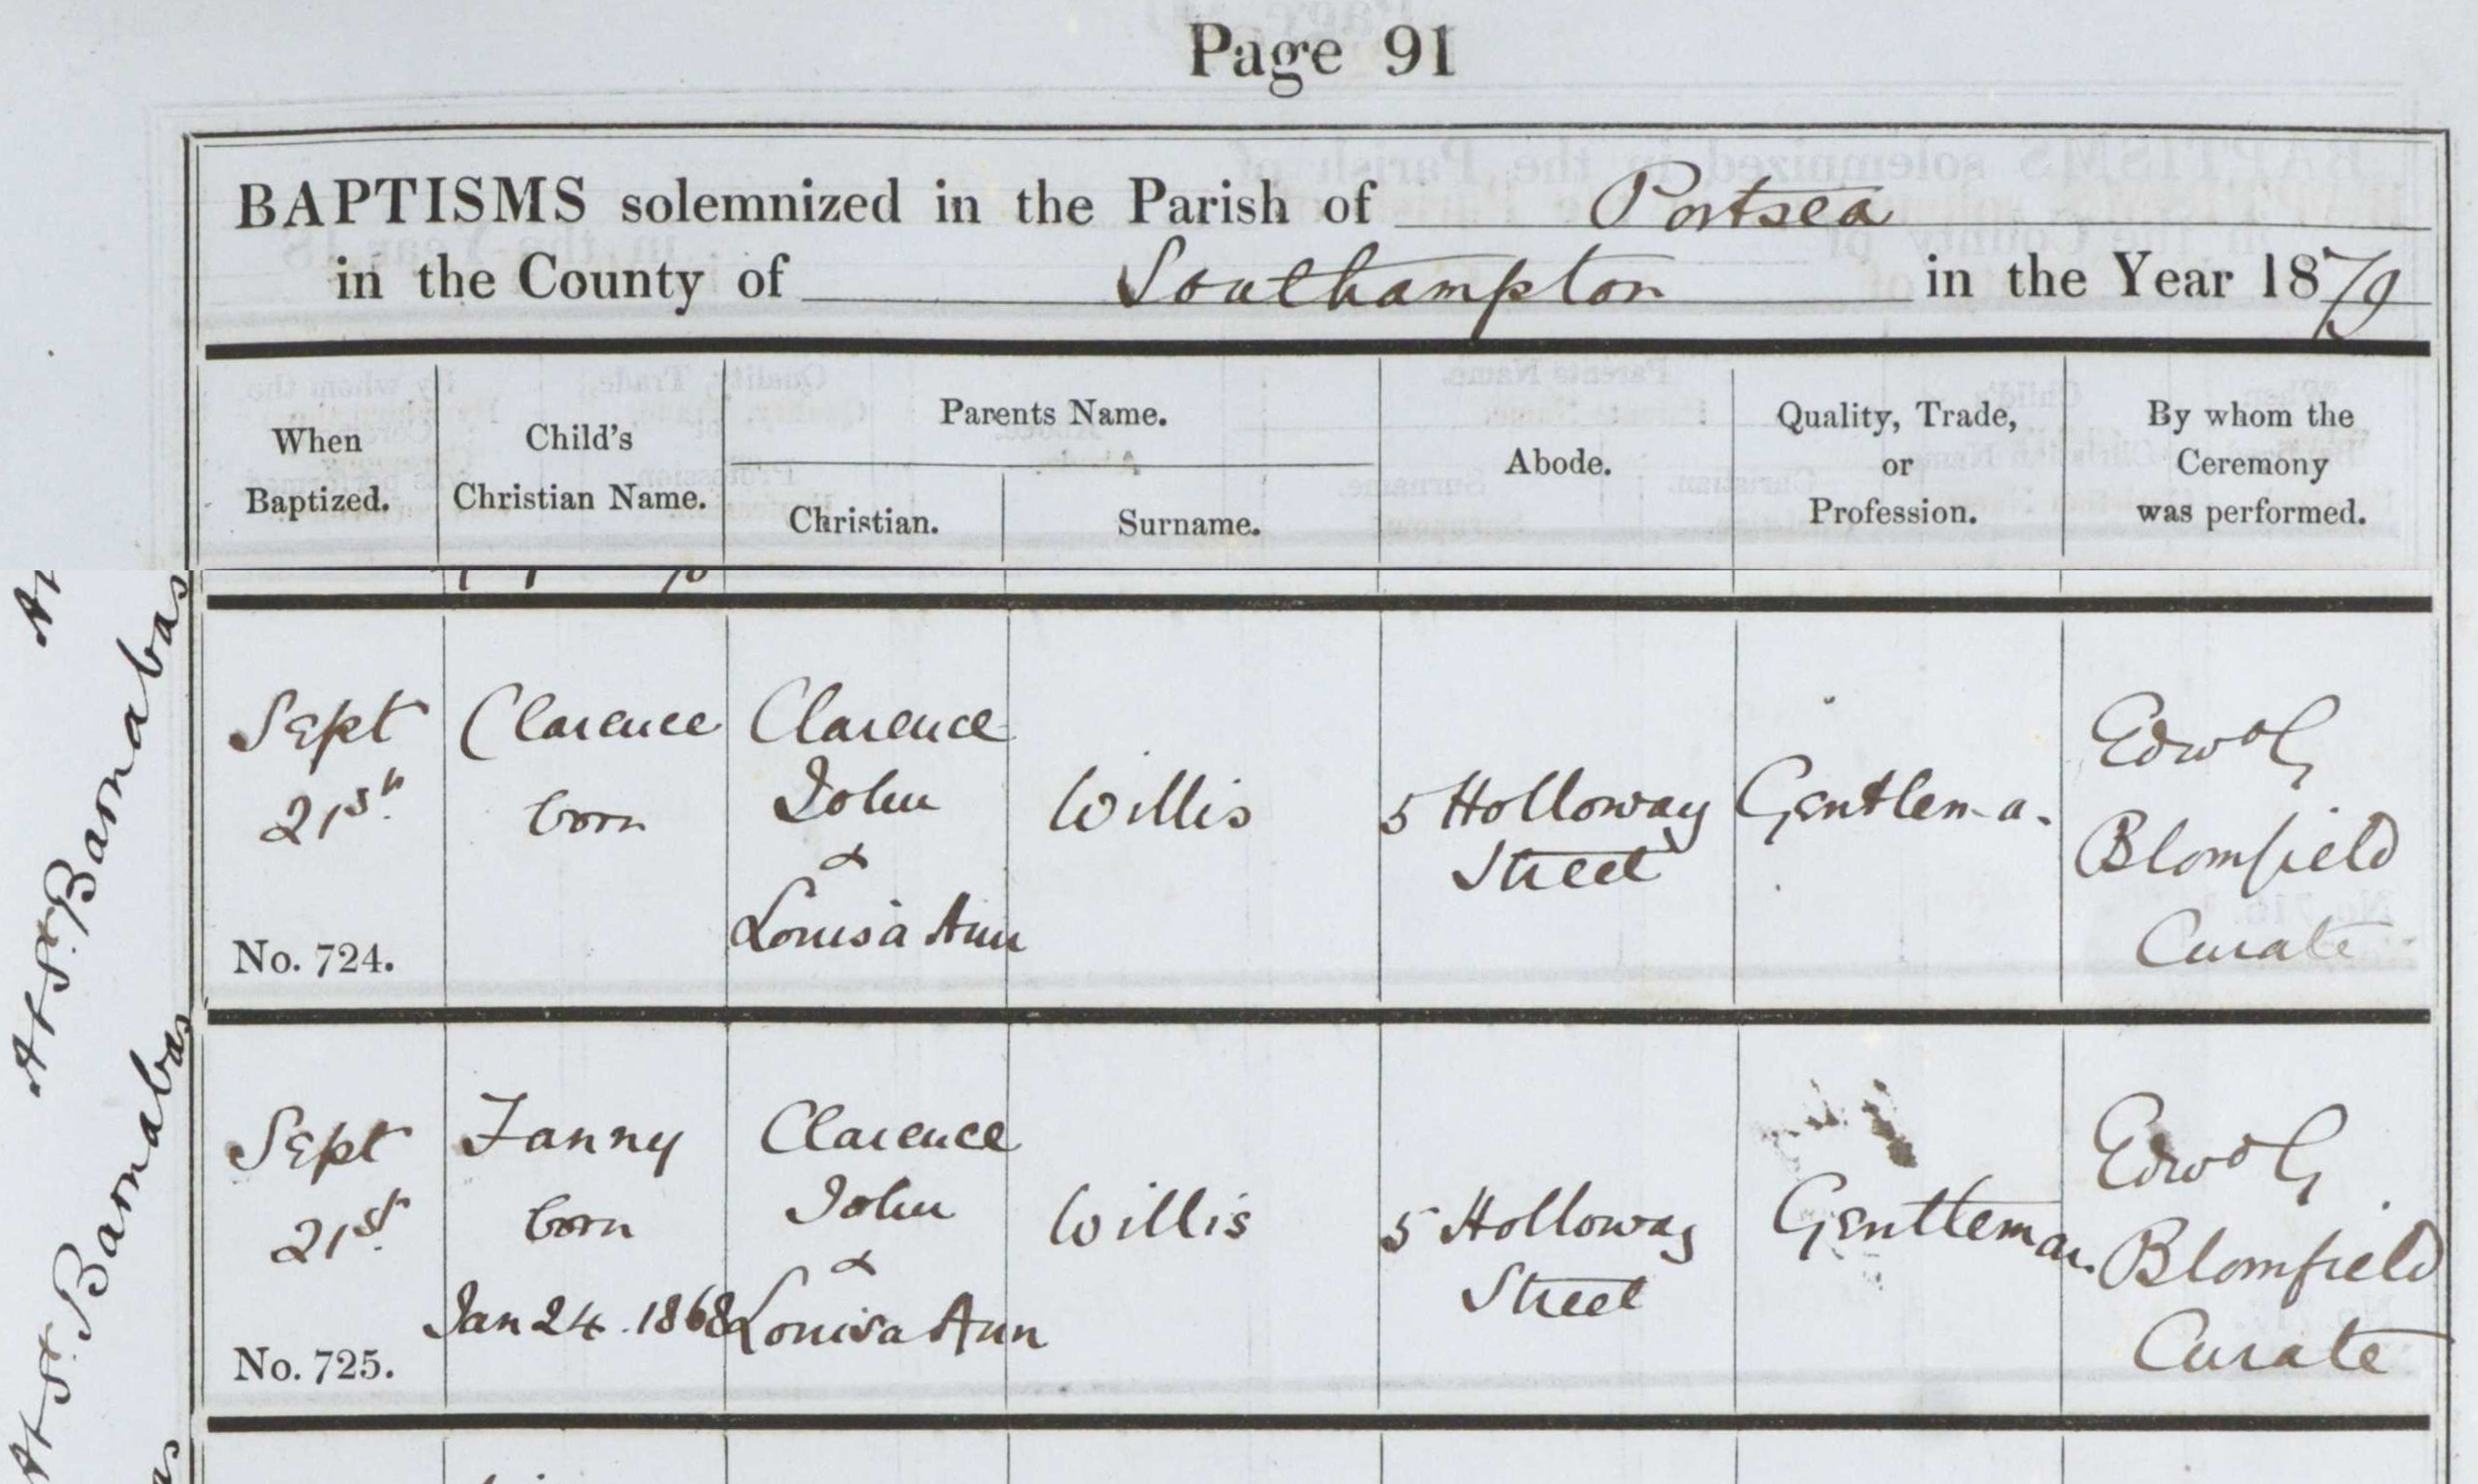 Page 91
BAPTISMS solemnized in the Parish of Portsea
in the County of Southampton in the Year 1879
When Baptized.
Child's Christian Name.
Parents Name.
Christian.
Surname.
Abode.
Quality, Trade, or Profession.
By whom the Ceremony was performed.
At St. Barnabas
Sept
21st.
No. 724.
Clarence
born
Clarence
John
&
Louisa Ann
Willis
5 Holloway
Street
Gentleman
Edwd G
Blomfield
Curate
At St. Barnabas
Sept
21st.
No. 725.
Fanny
born
Jan 24. 1868
Clarence
John
&
Louisa Ann
Willis
5 Holloway
Street
Gentleman
Edwd G
Blomfield
Curate